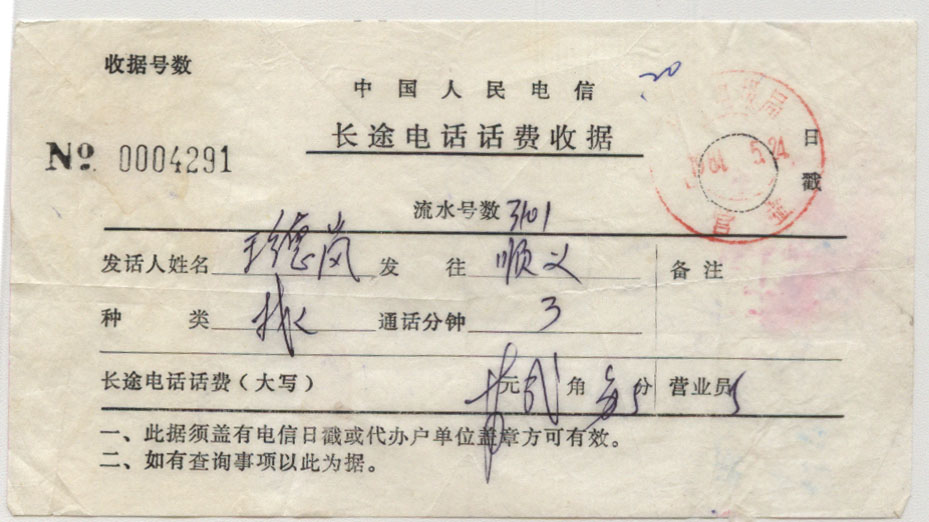 收据号数
中国人民电信
20
长途电话话费收据
№ 0004291
日戳
局
1984 5.24
流水号数 3101
发话人姓名 德岚 发往 顺义 备注
种类 通话分钟 3
长途电话话费（大写） 元 角 分 营业员
一、此据须盖有电信日戳或代办户单位盖章方可有效。
二、如有查询事项以此为据。